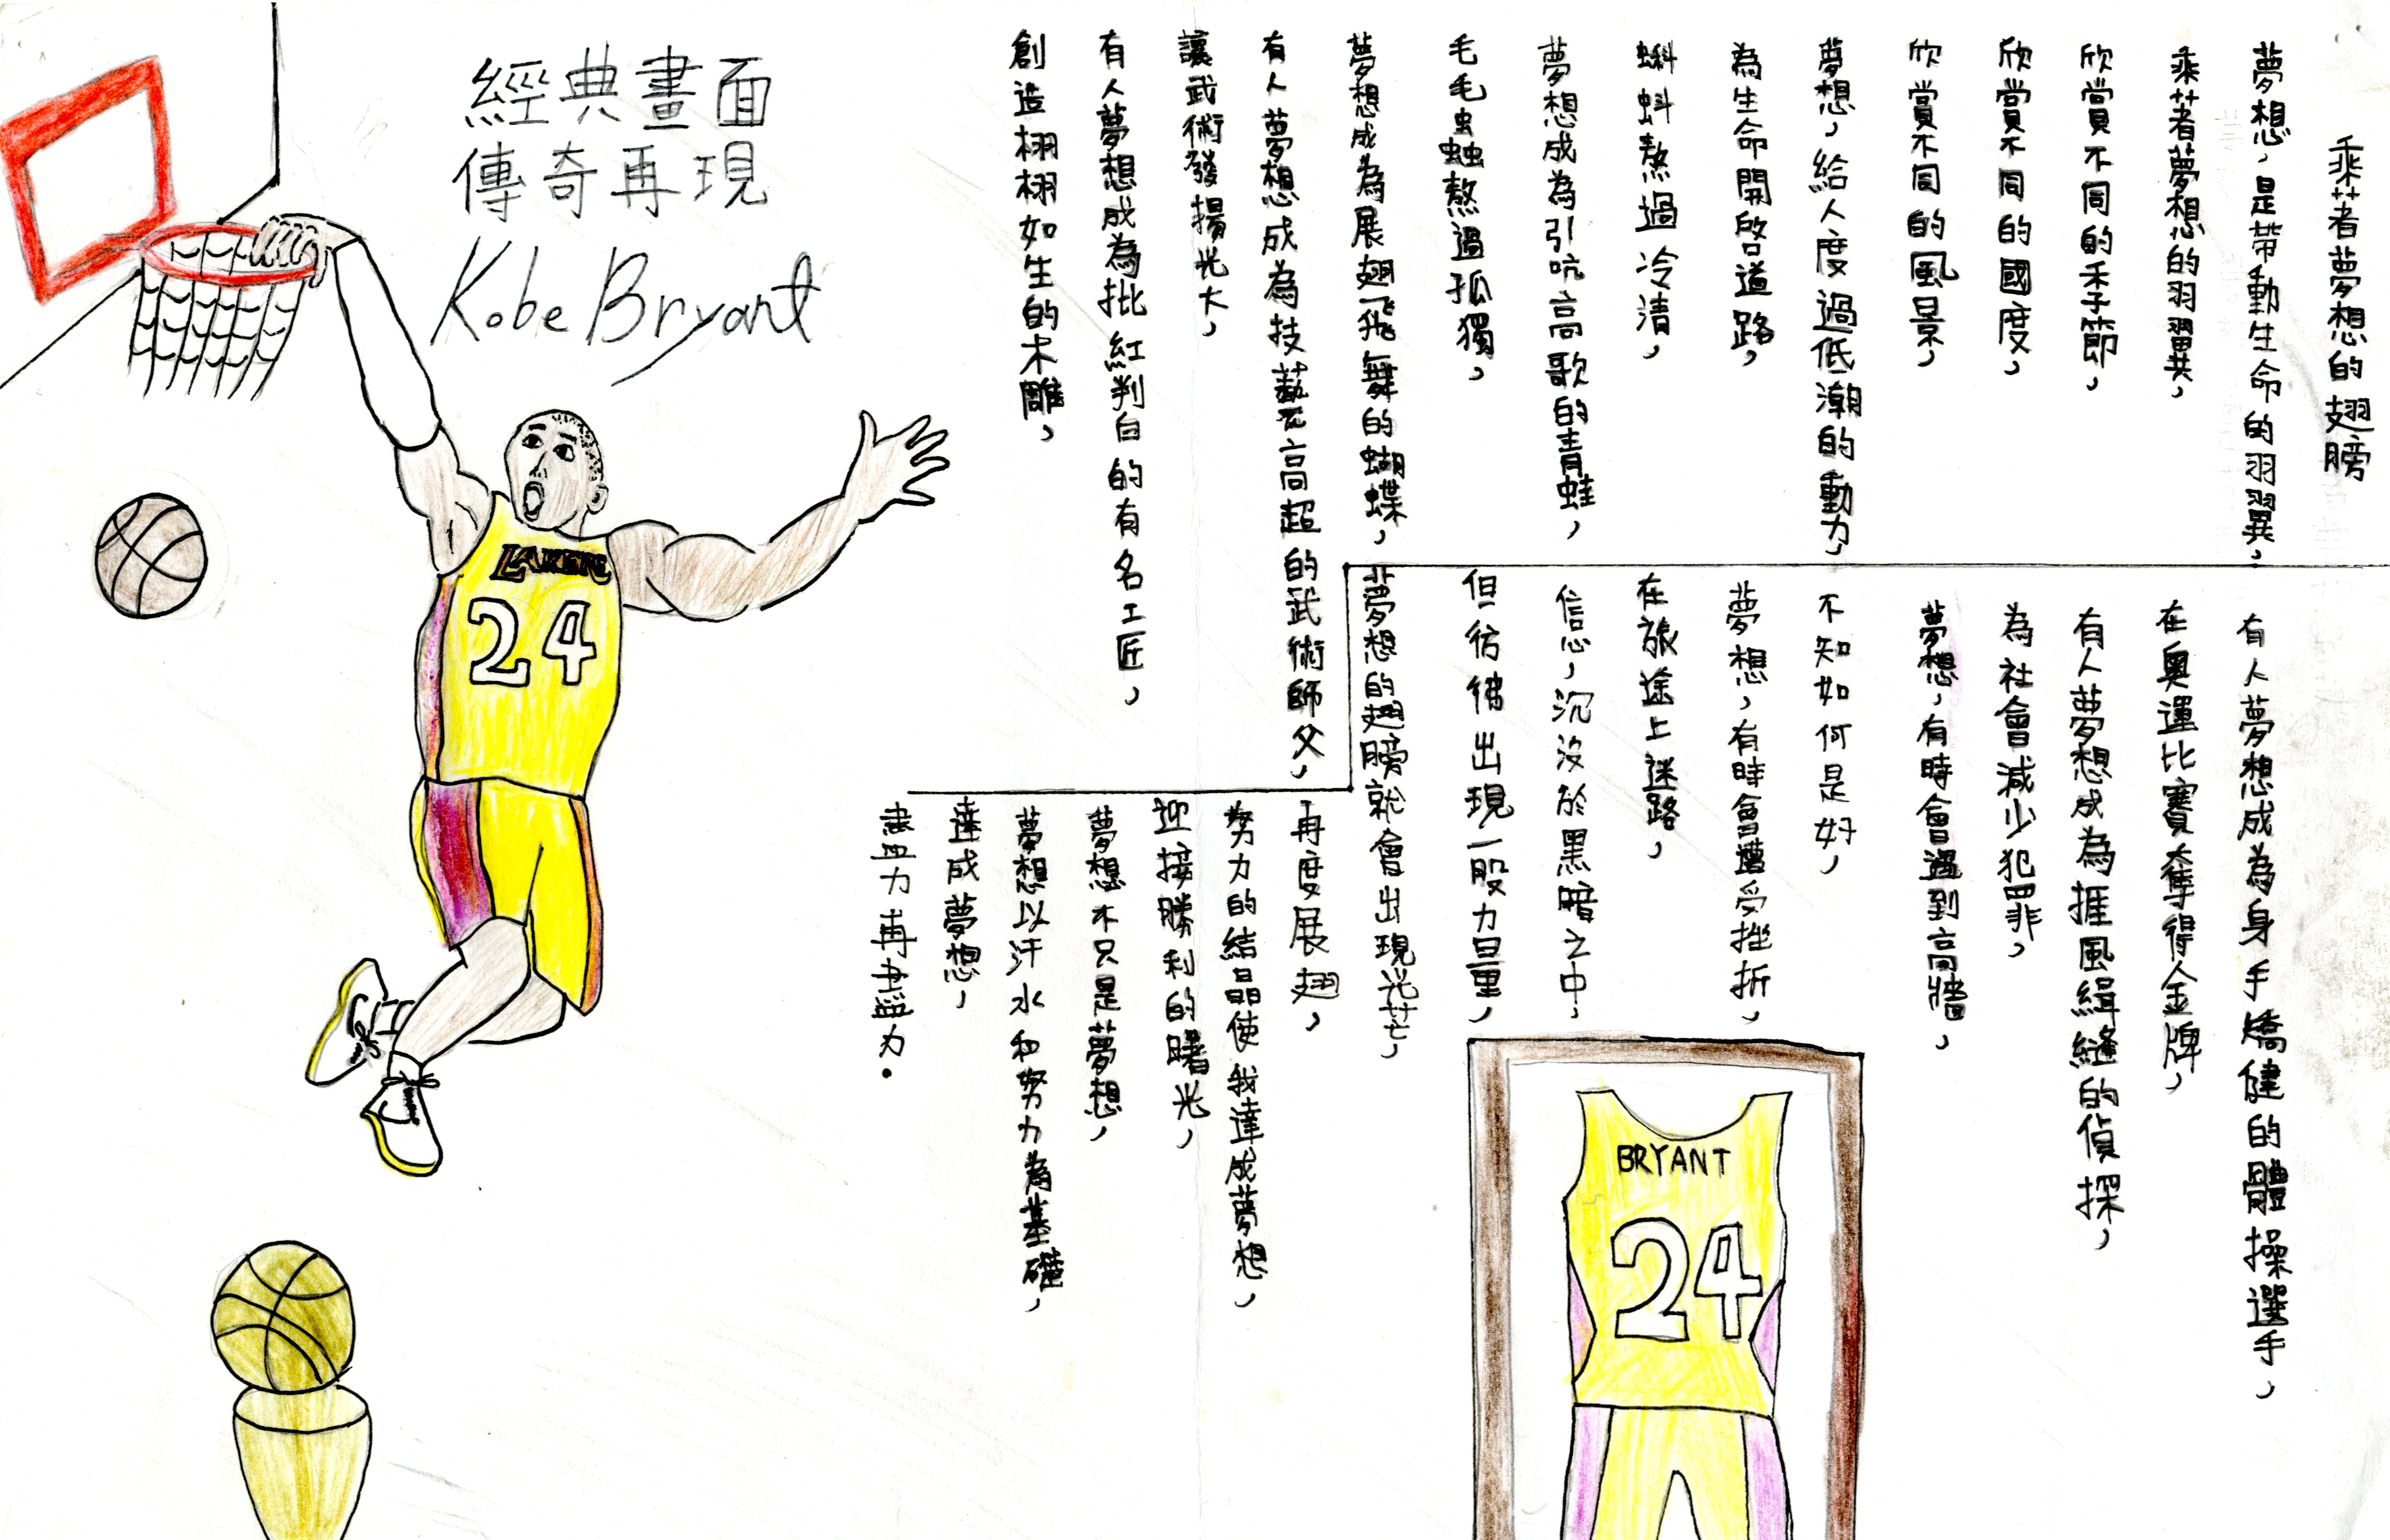 乘著夢想的翅膀
夢想，是帶動生命的羽翼，
乘著夢想的羽翼，
欣賞不同的季節，
欣賞不同的國度，
欣賞不同的風景，
夢想，給人度過低潮的動力，
為生命開啓道路，
蝌蚪熬過冷清，
夢想成為引吭高歌的青蛙，
毛毛蟲熬過孤獨，
夢想成為展翅飛舞的蝴蝶，
有人夢想成為技藝高超的武術師父，
讓武術發揚光大，
有人夢想成為批紅判白的有名工匠，
創造栩栩如生的木雕，
有人夢想成為身手矯健的體操選手，
在奧運比賽奪得金牌，
有人夢想成為捱風緝縫的偵探，
為社會減少犯罪，
夢想，有時會遇到高牆，
不知如何是好，
夢想，有時會遭受挫折，
在旅途上迷路，
信心，沉沒於黑暗之中，
但彷彿出現一股力量，
夢想的翅膀就會出現光芒，
再度展翅，
努力的結晶使我達成夢想，
迎接勝利的曙光，
夢想不只是夢想，
夢想以汗水和努力為基礎，
達成夢想，
盡力再盡力。
經典畫面
傳奇再現
Kobe Bryant
LAKERS
24
BRYANT
24